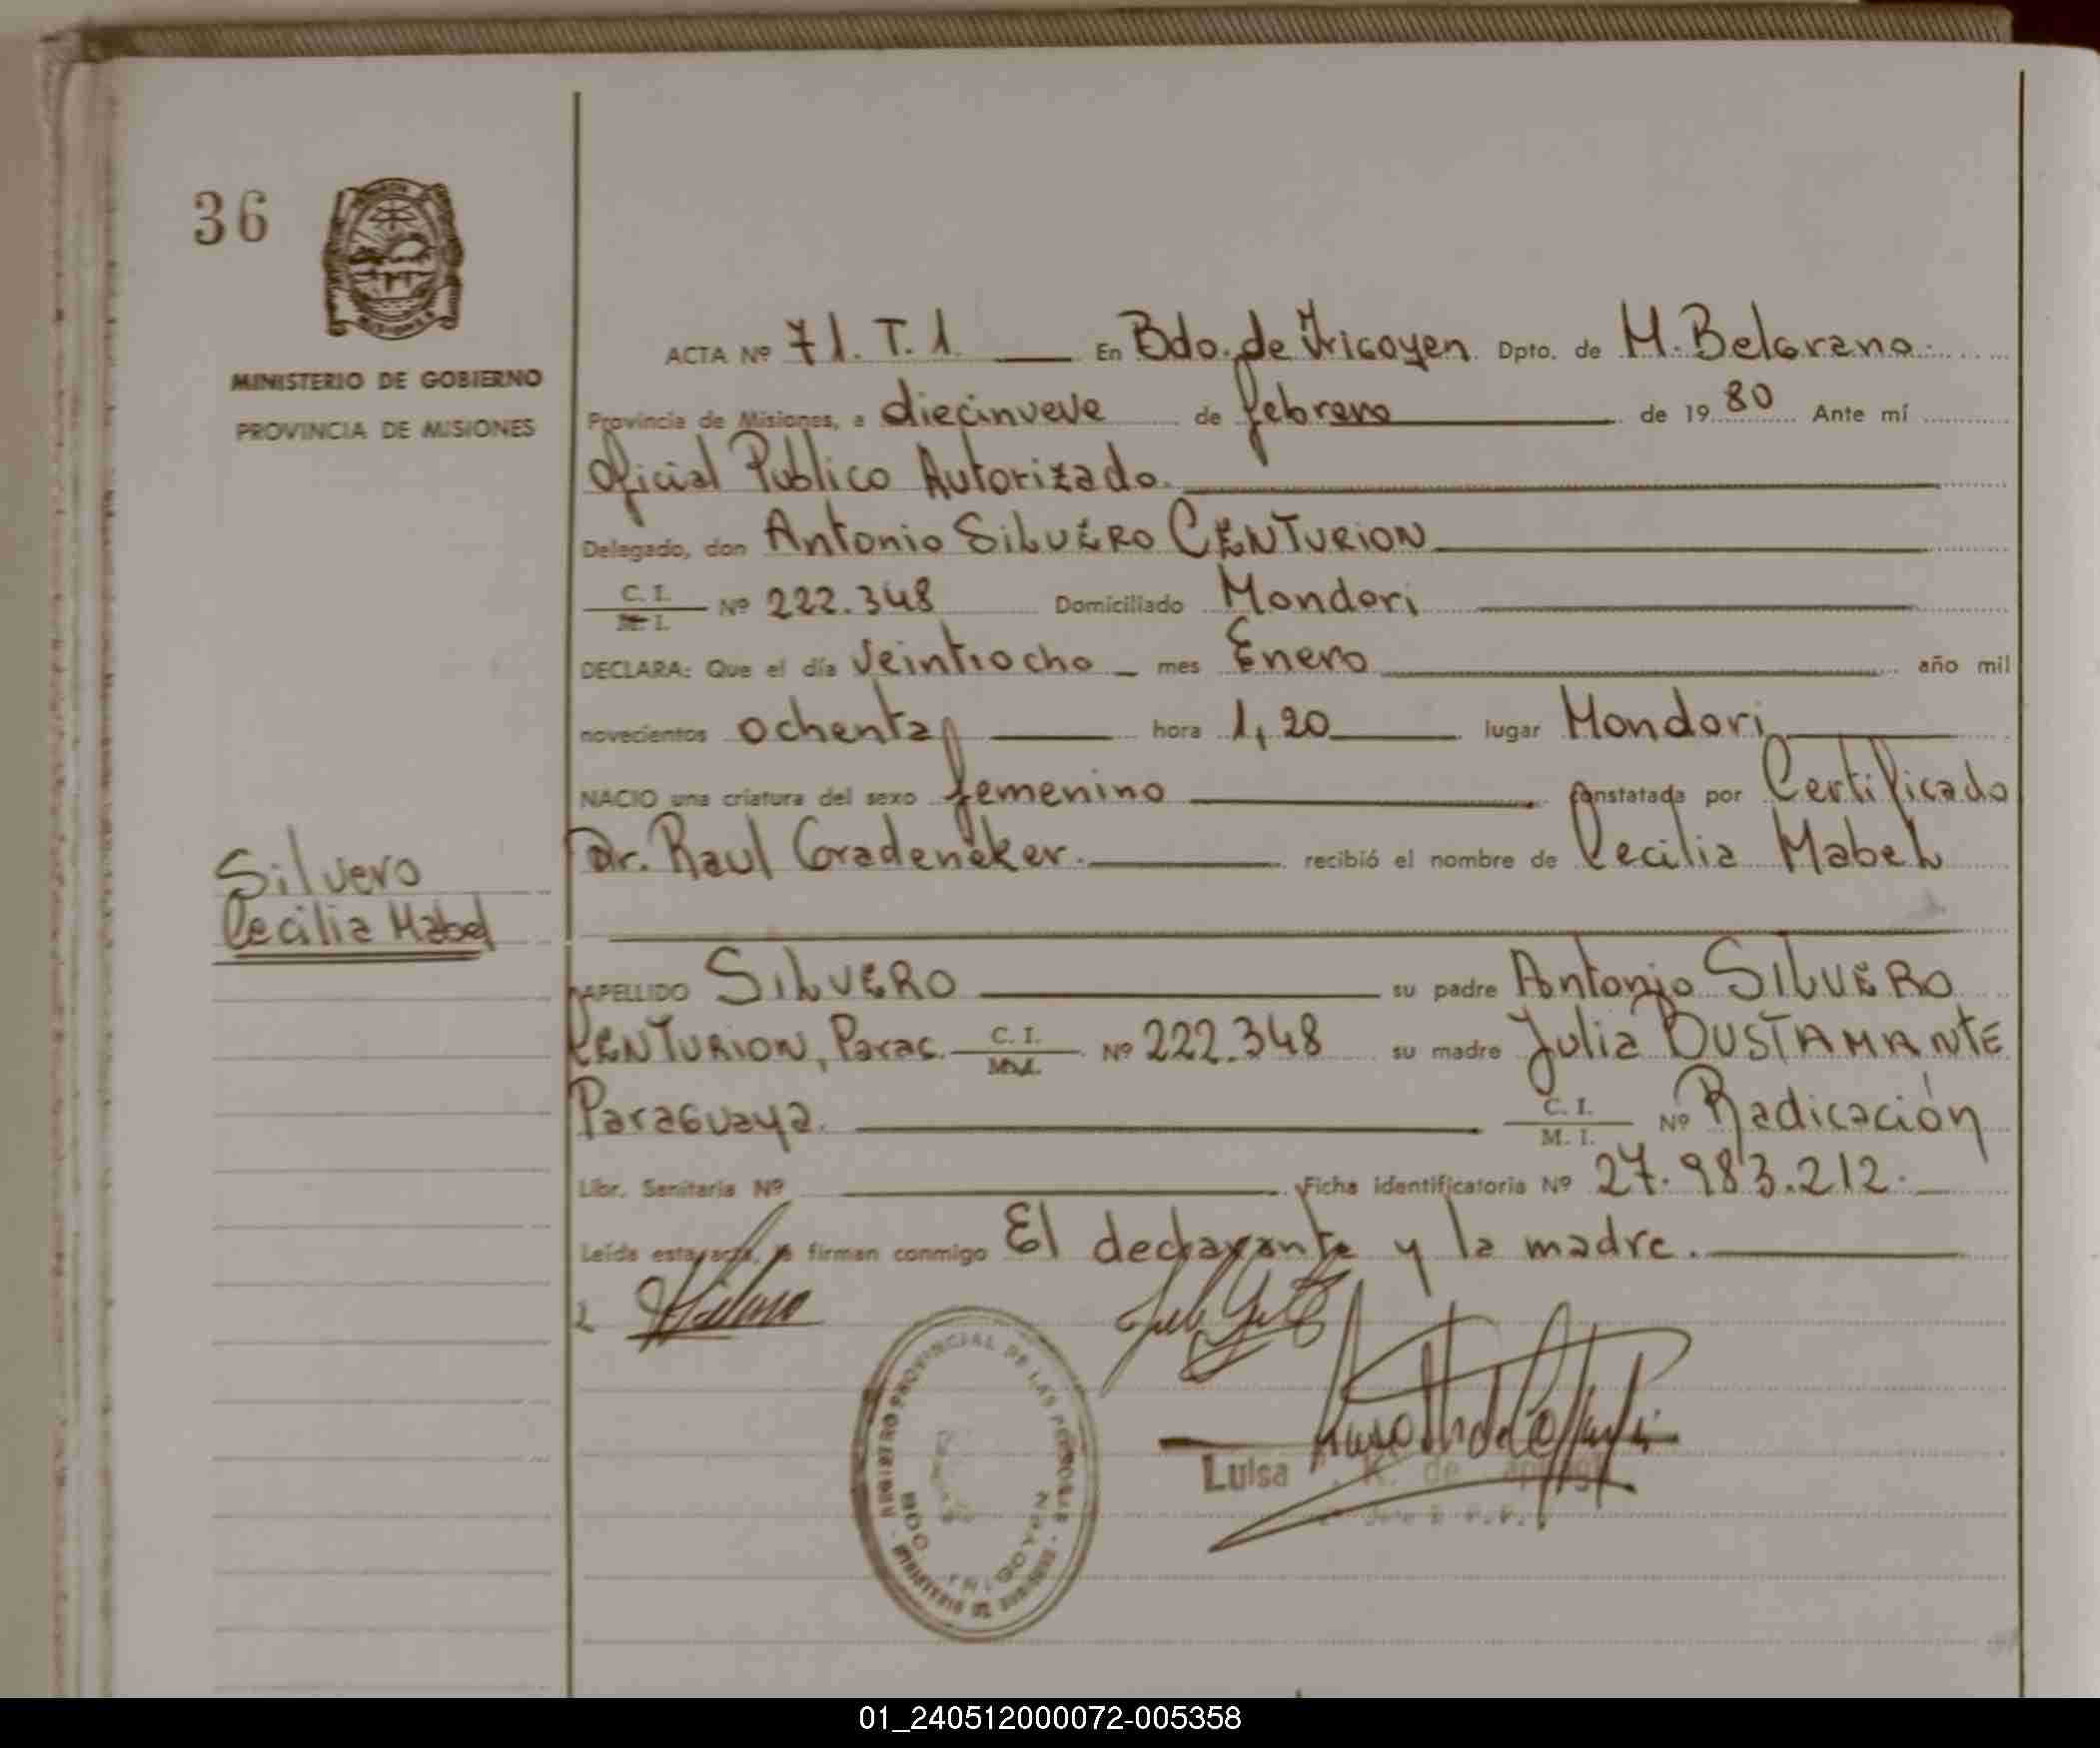 36
MINISTERIO DE GOBIERNO
PROVINCIA DE MISIONES
ACTA Nº 71. T. 1 En Bdo. de Yrigoyen Dpto. de M. Belgrano
Provincia de Misiones, a diecinueve de febrero de 1980 Ante mí
Oficial Publico Autorizado.
Delegado, don Antonio SILVERO CENTURION
C. I. M. I. Nº 222.348 Domiciliado Mondori
DECLARA: Que el día Veintiocho mes Enero año mil
novecientos ochenta hora 1,20 lugar Mondori
NACIO una criatura del sexo femenino constatada por Certificado
Dr. Raul Gradeneker. recibió el nombre de Cecilia Mabel
Silvero
Cecilia Mabel
APELLIDO SILVERO su padre Antonio SILVERO
CENTURION, Parag. C. I. M.I. Nº 222.348 su madre Julia BUSTAMANTE
Paraguaya. C. I. M. I. Nº Radicación
Libr. Sanitaria Nº Ficha identificatoria Nº 27.983.212.
Leída esta acta, la firman conmigo El declarante y la madre.
REGISTRO PROVINCIAL DE LAS PERSONAS - MINISTERIO DE GOBIERNO
BDO. YRIGOYEN
Luisa K. de
01_240512000072-005358